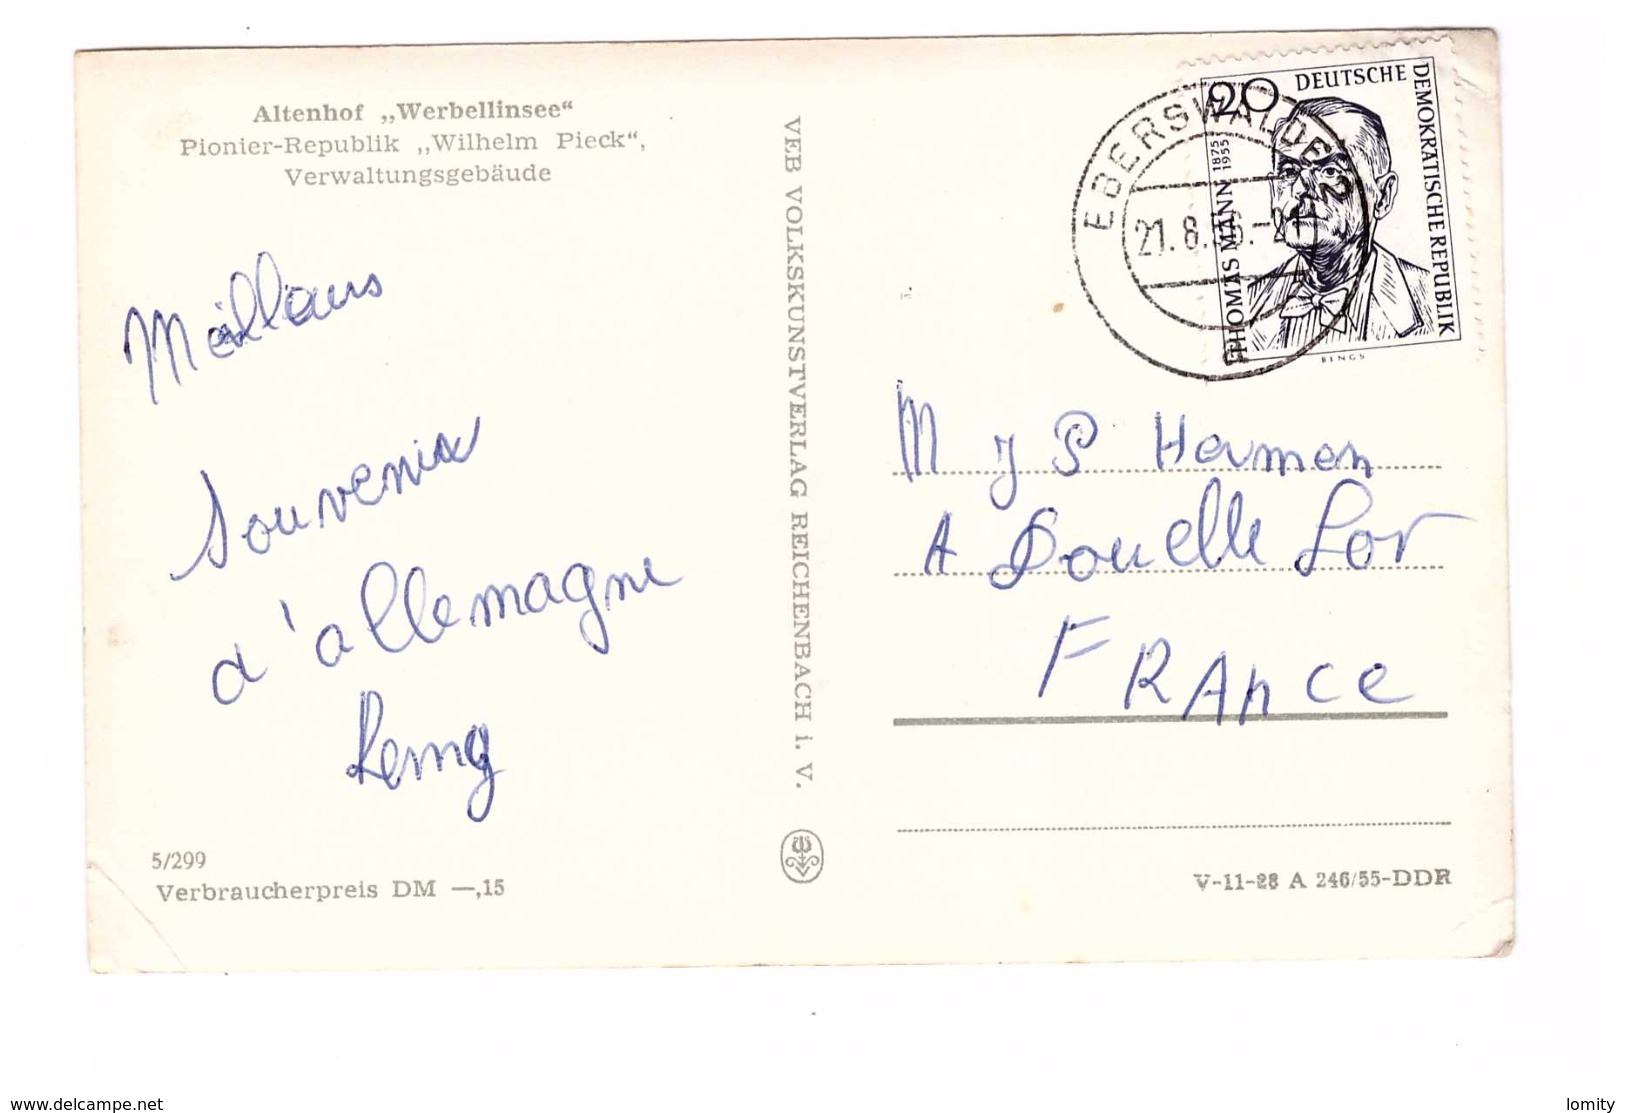 Altenhof „Werbellinsee“
Pionier-Republik „Wilhelm Pieck“,
Verwaltungsgebäude
Meillaurs
Souvenix
d'allemagne
Remy
5/299
Verbraucherpreis DM —,15
VEB VOLKSKUNSTVERLAG REICHENBACH i. V.
20
DEUTSCHE DEMOKRATISCHE REPUBLIK
THOMAS MANN 1875 1955
BENGS
EBERSWALDE 2
21.8.
M J P Herman
A Douelle Lot
FRANce
V-11-28 A 246/55-DDR
www.delcampe.net
lomity